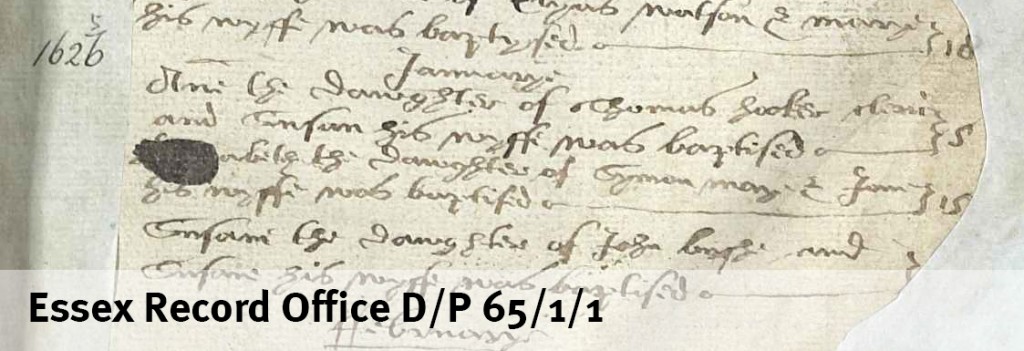 Elyas watson & marye
his wyffe was baptysed 18
1626
5
Januarye
Ane the dawghter of Thomas hooker clearke
and Susan his wyffe was baptised 5
abeth the dawghter of Symon maye & Jane
his wyffe was baptised 15
Susane the dawghter of John and
Susane his wyffe was baptised
ffebruarye
Essex Record Office D/P 65/1/1